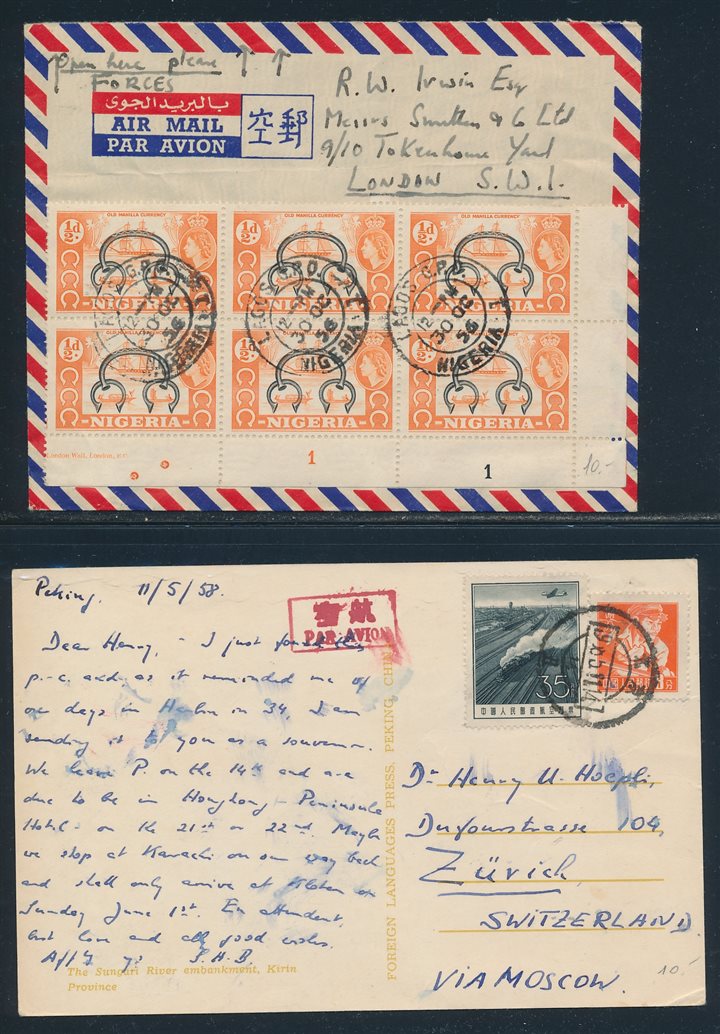 Open here please
FORCES
بالبريد الجوى
AIR MAIL
PAR AVION
郵
空
R.W. Irwin Esq
Messrs & Co Ltd
9/10 Tokenhouse Yard
LONDON S.W.1.
OLD MANILLA CURRENCY
½d.
NIGERIA
OLD MANILLA CURRENCY
½d.
NIGERIA
OLD MANILLA CURRENCY
½d.
NIGERIA
LAGOS G.P.O.
30 OC
56
NIGERIA
LAGOS G.P.O.
30 OC
56
NIGERIA
LAGOS G.P.O.
30 OC
56
NIGERIA
½d.
NIGERIA
½d.
NIGERIA
½d.
NIGERIA
London Wall, London, E.C.
1
1
10.-
Peking, 11/5/58.
Dear Henry, - I just found this
p.-c. and as it reminded me of
our days in Harbin in 34, I am
sending it to you as a souvenir.
We leave P. on the 14th and are
due to be in Hongkong - Peninsula
Hotel - on the 21st or 22nd. Maybe
we stop at Karachi on our way back
and shall only arrive at Kloten on
Sunday June 1st. En attendant,
best love and all good wishes.
S.H.B.
The Sungari River embankment, Kirin
Province
航空
PAR AVION
FOREIGN LANGUAGES PRESS, PEKING, CHINA
35分
中国人民邮政航空邮票
Dr Henry U. Hoepli,
Dufourstrasse 104,
Zürich,
SWITZERLAND.
VIA MOSCOW.
10.-